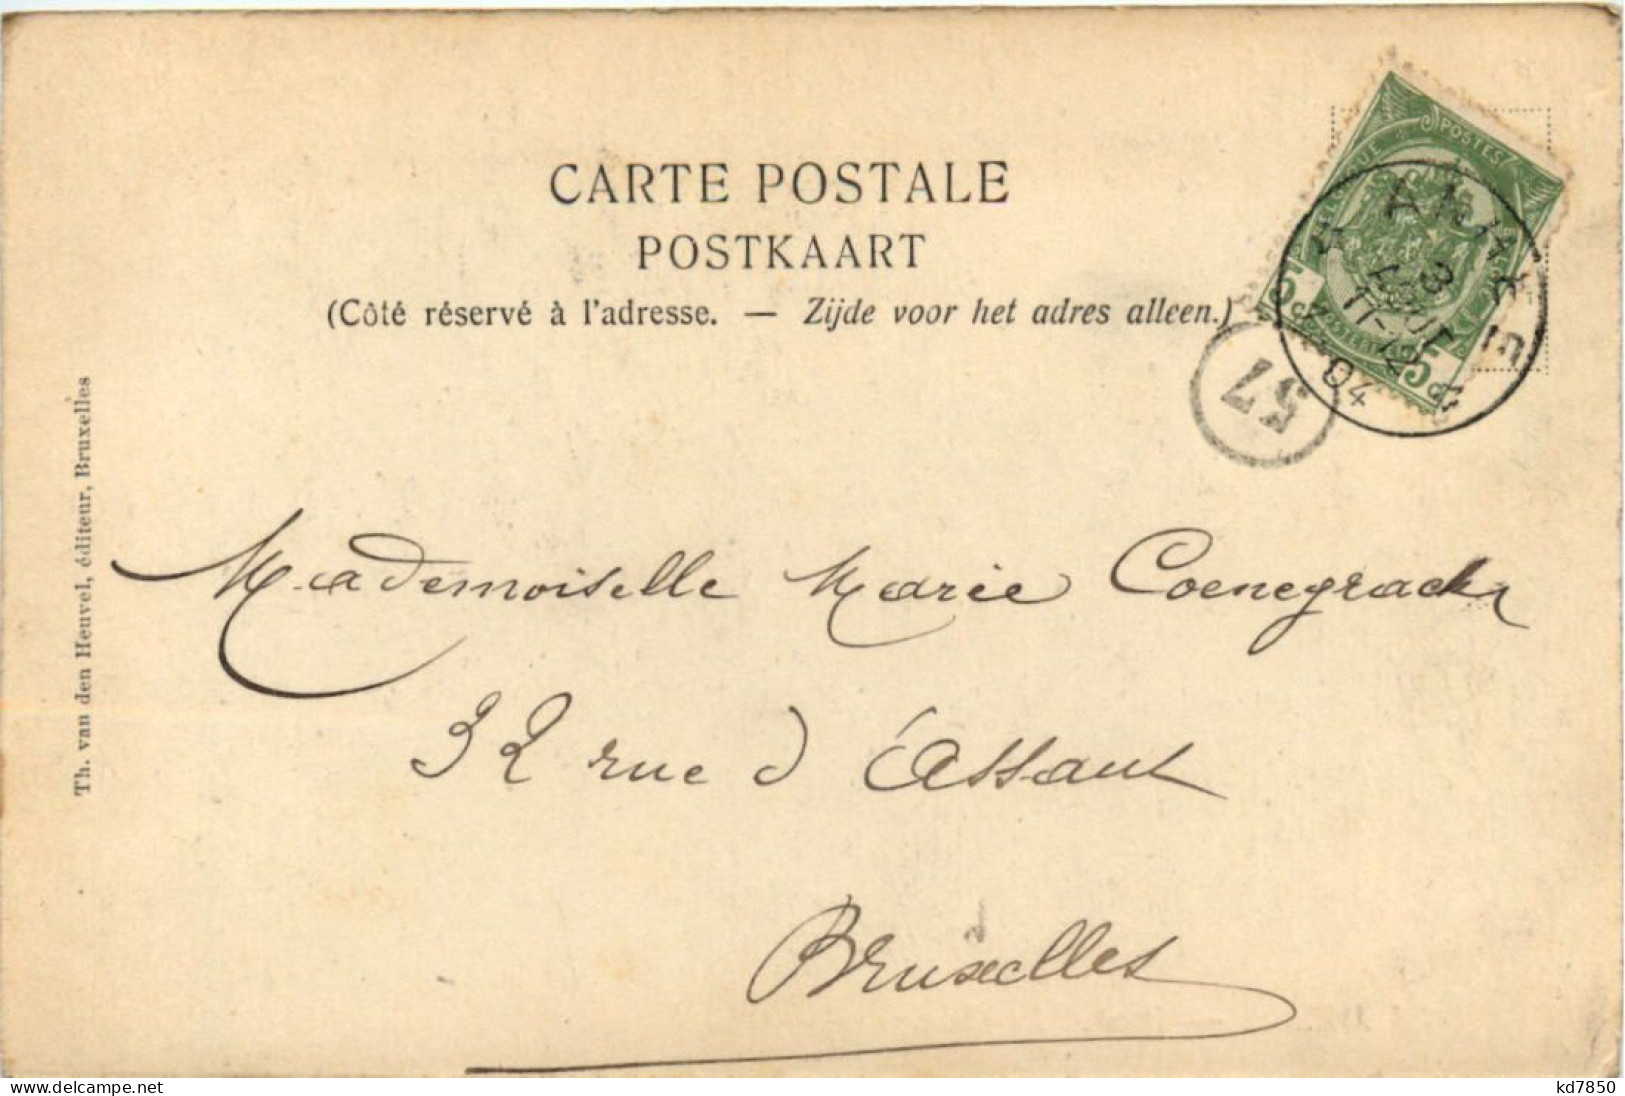 CARTE POSTALE
POSTKAART
(Côté réservé à l'adresse. — Zijde voor het adres alleen.)
POSTES
5c 5c
3
1904
57
Mademoiselle Marie Coenegrachts
32 rue d'Assaut
Bruxelles
Th. van den Heuvel, éditeur, Bruxelles
www.delcampe.net
kd7850